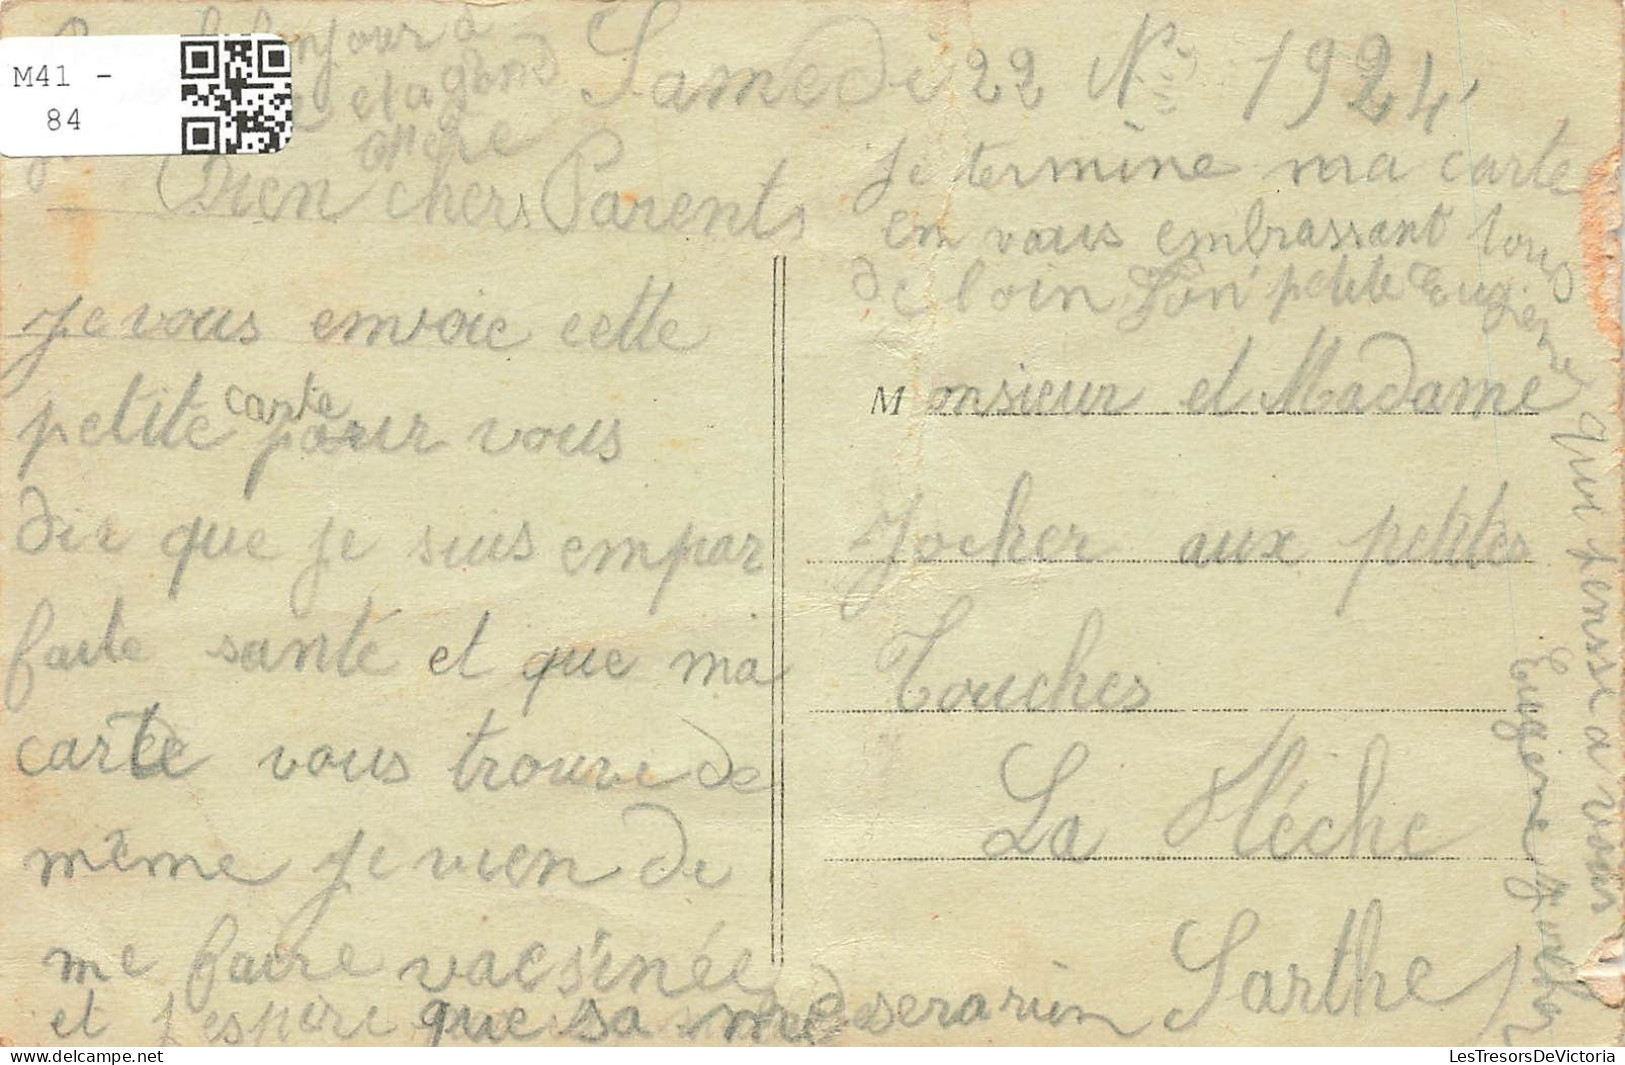 M41 -
84
bonjour à
et a grand
mère
Samedi 22 N 1924
Bien chers Parents
Je vous envoie cette
petite carte pour vous
dir que je suis empar
faite santé et que ma
carte vous trouve de
même Je vien de
me faire vacsinée
et j'espère que sa me sera rien
Je termine ma carte
en vous embrassant tous
de loin Ton petite Eugiene
qui pensse a vous
Eugiene Jocher
Monsieur et Madame
Jocher aux petites
Touches
La Flèche
Sarthe
LesTresorsDeVictoria